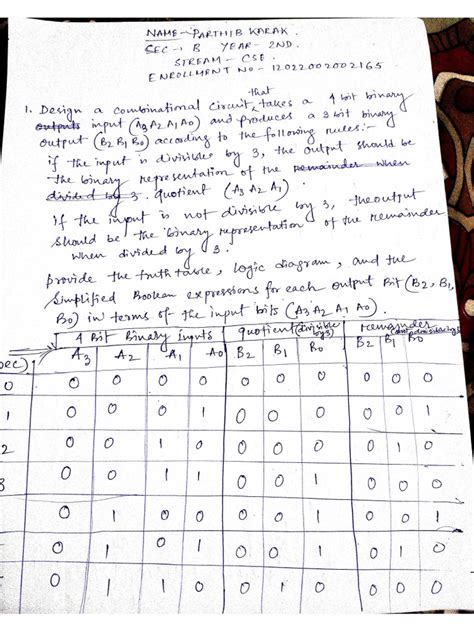 NAME - PARTHIB KARAK.
SEC -> B YEAR - 2ND.
STREAM - CSE.
ENROLLMENT NO - 12022002002165
1. Design a combinational circuit that takes a 4 bit binary
outputs input (A3 A2 A1 A0) and produces a 3 bit binary
output (B2 B1 B0) according to the following rules:-
if the input is divisible by 3, the output should be
the binary representation of the remainder when
divided by 3. quotient (A3 A2 A1).
If the input is not divisible by 3, the output
should be the binary representation of the remainder
when divided by 3.
provide the truth table, logic diagram, and the
simplified Boolean expressions for each output Bit (B2, B1,
B0) in terms of the input bits (A3 A2 A1 A0).
4 Bit Binary Inputs quotient (divisible by 3) remainder
A3 A2 A1 A0 B2 B1 B0 B2 B1 B0
0 0 0 0 0 0 0 0 0 0 0
1 0 0 0 1 0 0 0 0 0 1
2 0 0 1 0 0 0 0 0 1 0
3 0 0 1 1 0 0 1 0 0 0
0 1 0 0 0 0 1 0 0 1
0 1 0 1 0 0 1 0 1 0
0 1 1 0 0 1 0 0 0 0